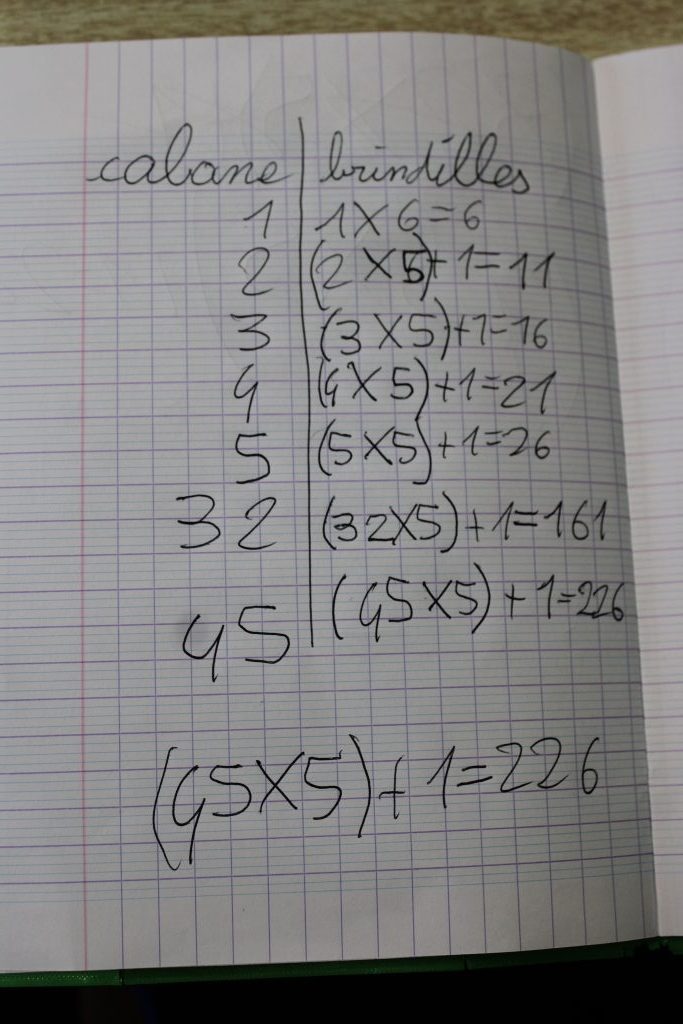 cabane | brindilles
1 | 1 × 6 = 6
2 | (2 × 5) + 1 = 11
3 | (3 × 5) + 1 = 16
4 | (4 × 5) + 1 = 21
5 | (5 × 5) + 1 = 26
32 | (32 × 5) + 1 = 161
45 | (45 × 5) + 1 = 226
(45 × 5) + 1 = 226